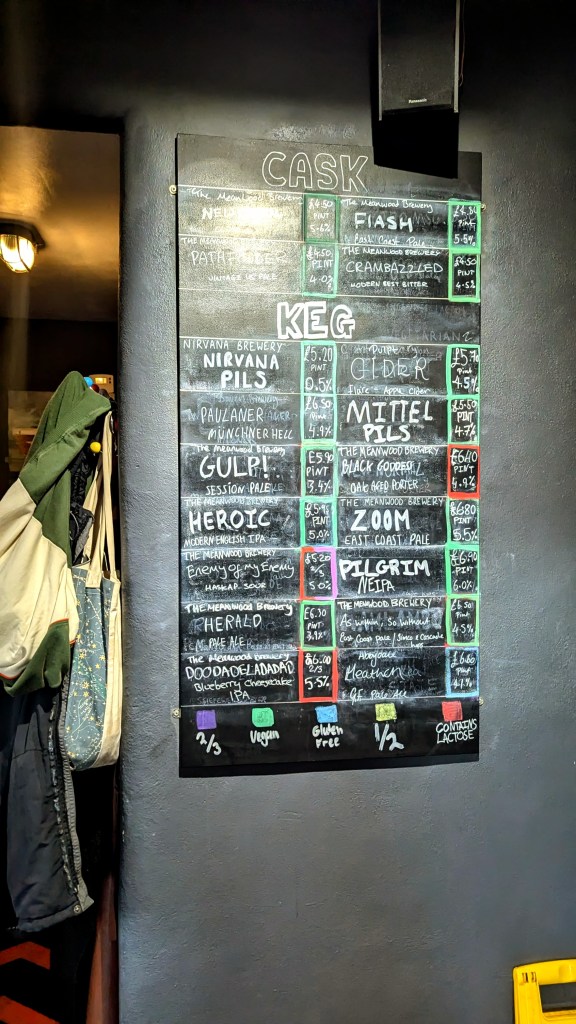 Panasonic
CASK
The Meanwood Brewery
£4.50
PINT
5.6%
The Meanwood Brewery
FLASH
East Coast Pale
Pint
5.5%
THE MEANWOOD BREWERY
PATHFINDER
VINTAGE US PALE
£4.50
PINT
4.0%
THE MEANWOOD BREWERY
CRAMBAZZLED
MODERN BEST BITTER
£4.50
PINT
4.5%
KEG
NIRVANA BREWERY
NIRVANA
PILS
£5.20
PINT
0.5%
Purple
CIDER
Apple Cider
Pint
4.5%
PAULANER
MÜNCHNER HELL
£6.50
PINT
4.9%
MITTEL
PILS
£5.50
PINT
4.7%
The Meanwood Brewery
GULP!
SESSION PALE
PINT
3.4%
THE MEANWOOD BREWERY
BLACK GODDESS
OAK AGED PORTER
£6.40
PINT
4.9%
THE MEANWOOD BREWERY
HEROIC
MODERN ENGLISH IPA
PINT
5.0%
THE MEANWOOD BREWERY
ZOOM
EAST COAST PALE
£6.80
PINT
5.5%
THE MEANWOOD BREWERY
Enemy of my Enemy
HASKAP SOUR
£5.20
2/3
5.0%
PILGRIM
NEIPA
£6.90
PINT
6.0%
THE MEANWOOD Brewery
HERALD
PALE ALE
£6.30
PINT
THE MEANWOOD BREWERY
As Within, So Without
East Coast Pale / Simcoe & Cascade
hops
£6.50
PINT
4.5%
The Meanwood Brewery
DOODADELADADAD
Blueberry Cheesecake
IPA
£6.00
2/3
5.5%
Abeydale
Heathen
GF Pale Ale
£6.60
Pint
4.1%
2/3
Vegan
Gluten
Free
1/2
CONTAINS
LACTOSE